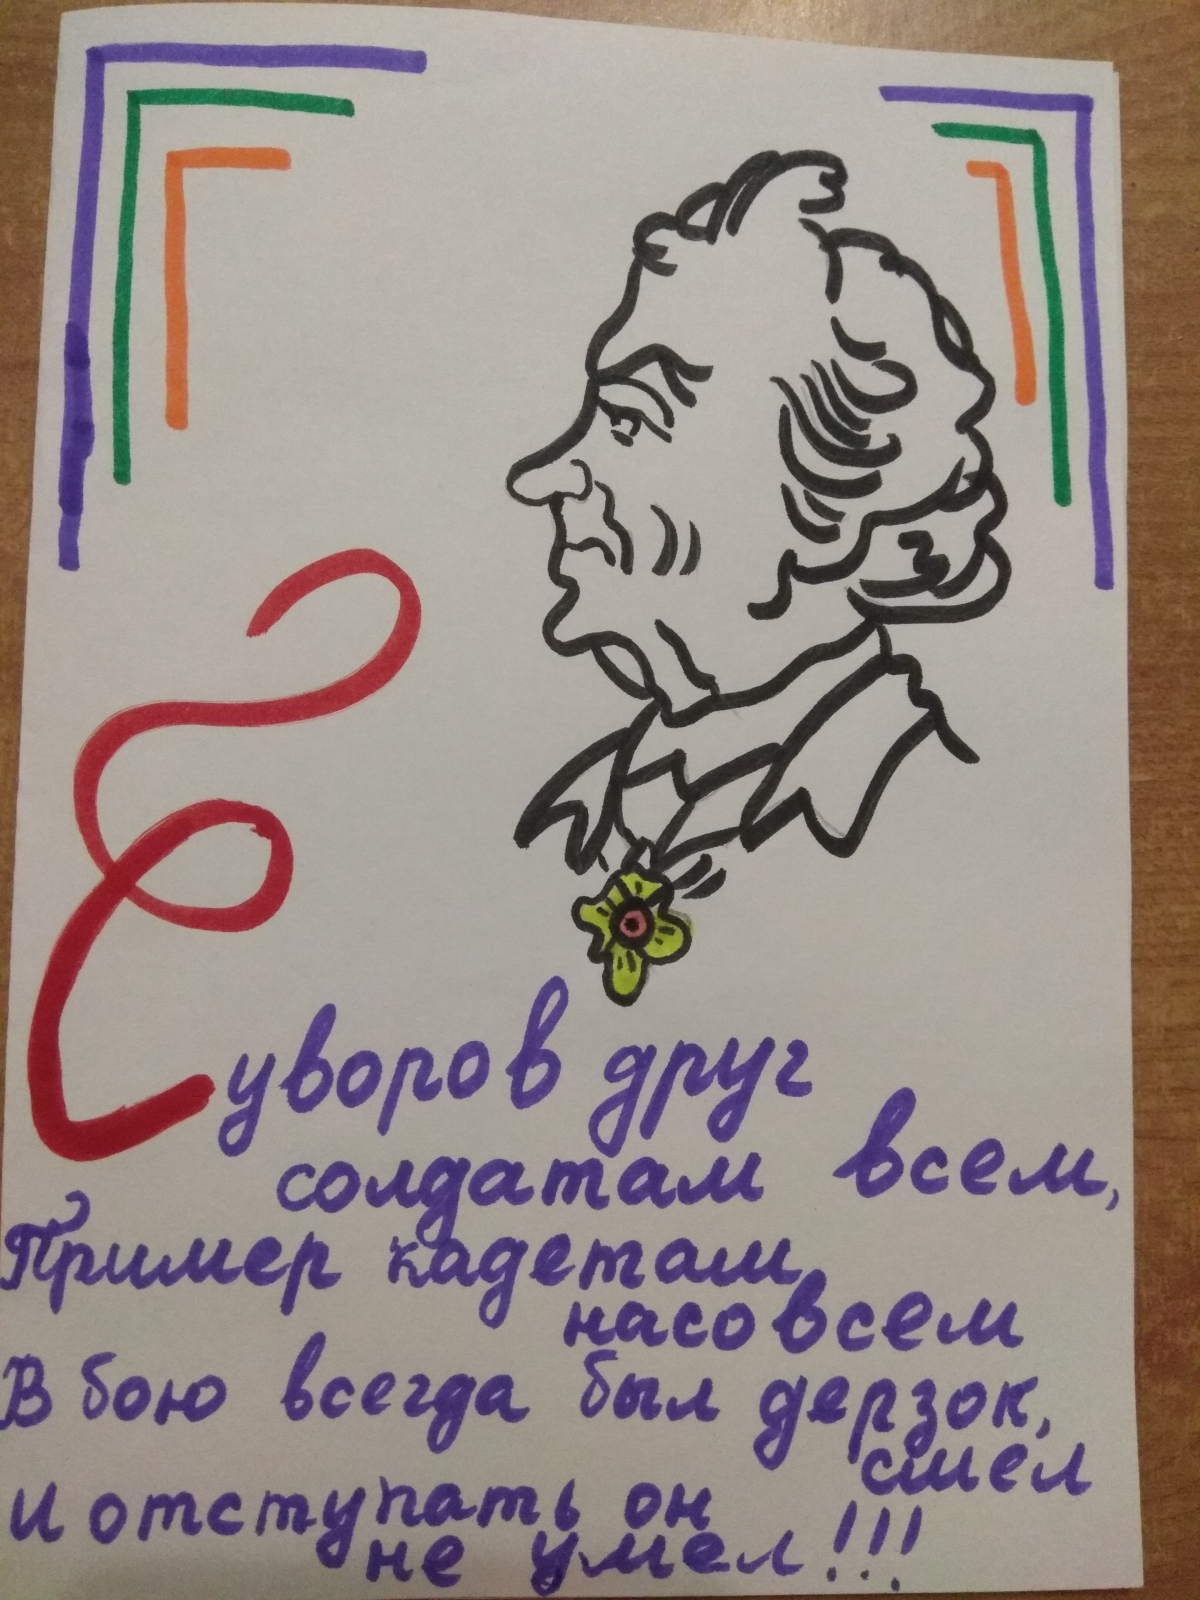 Суворов друг
солдатам всем,
Пример кадетам
насовсем
В бою всегда был дерзок,
смел
и отступать он
не умел!!!